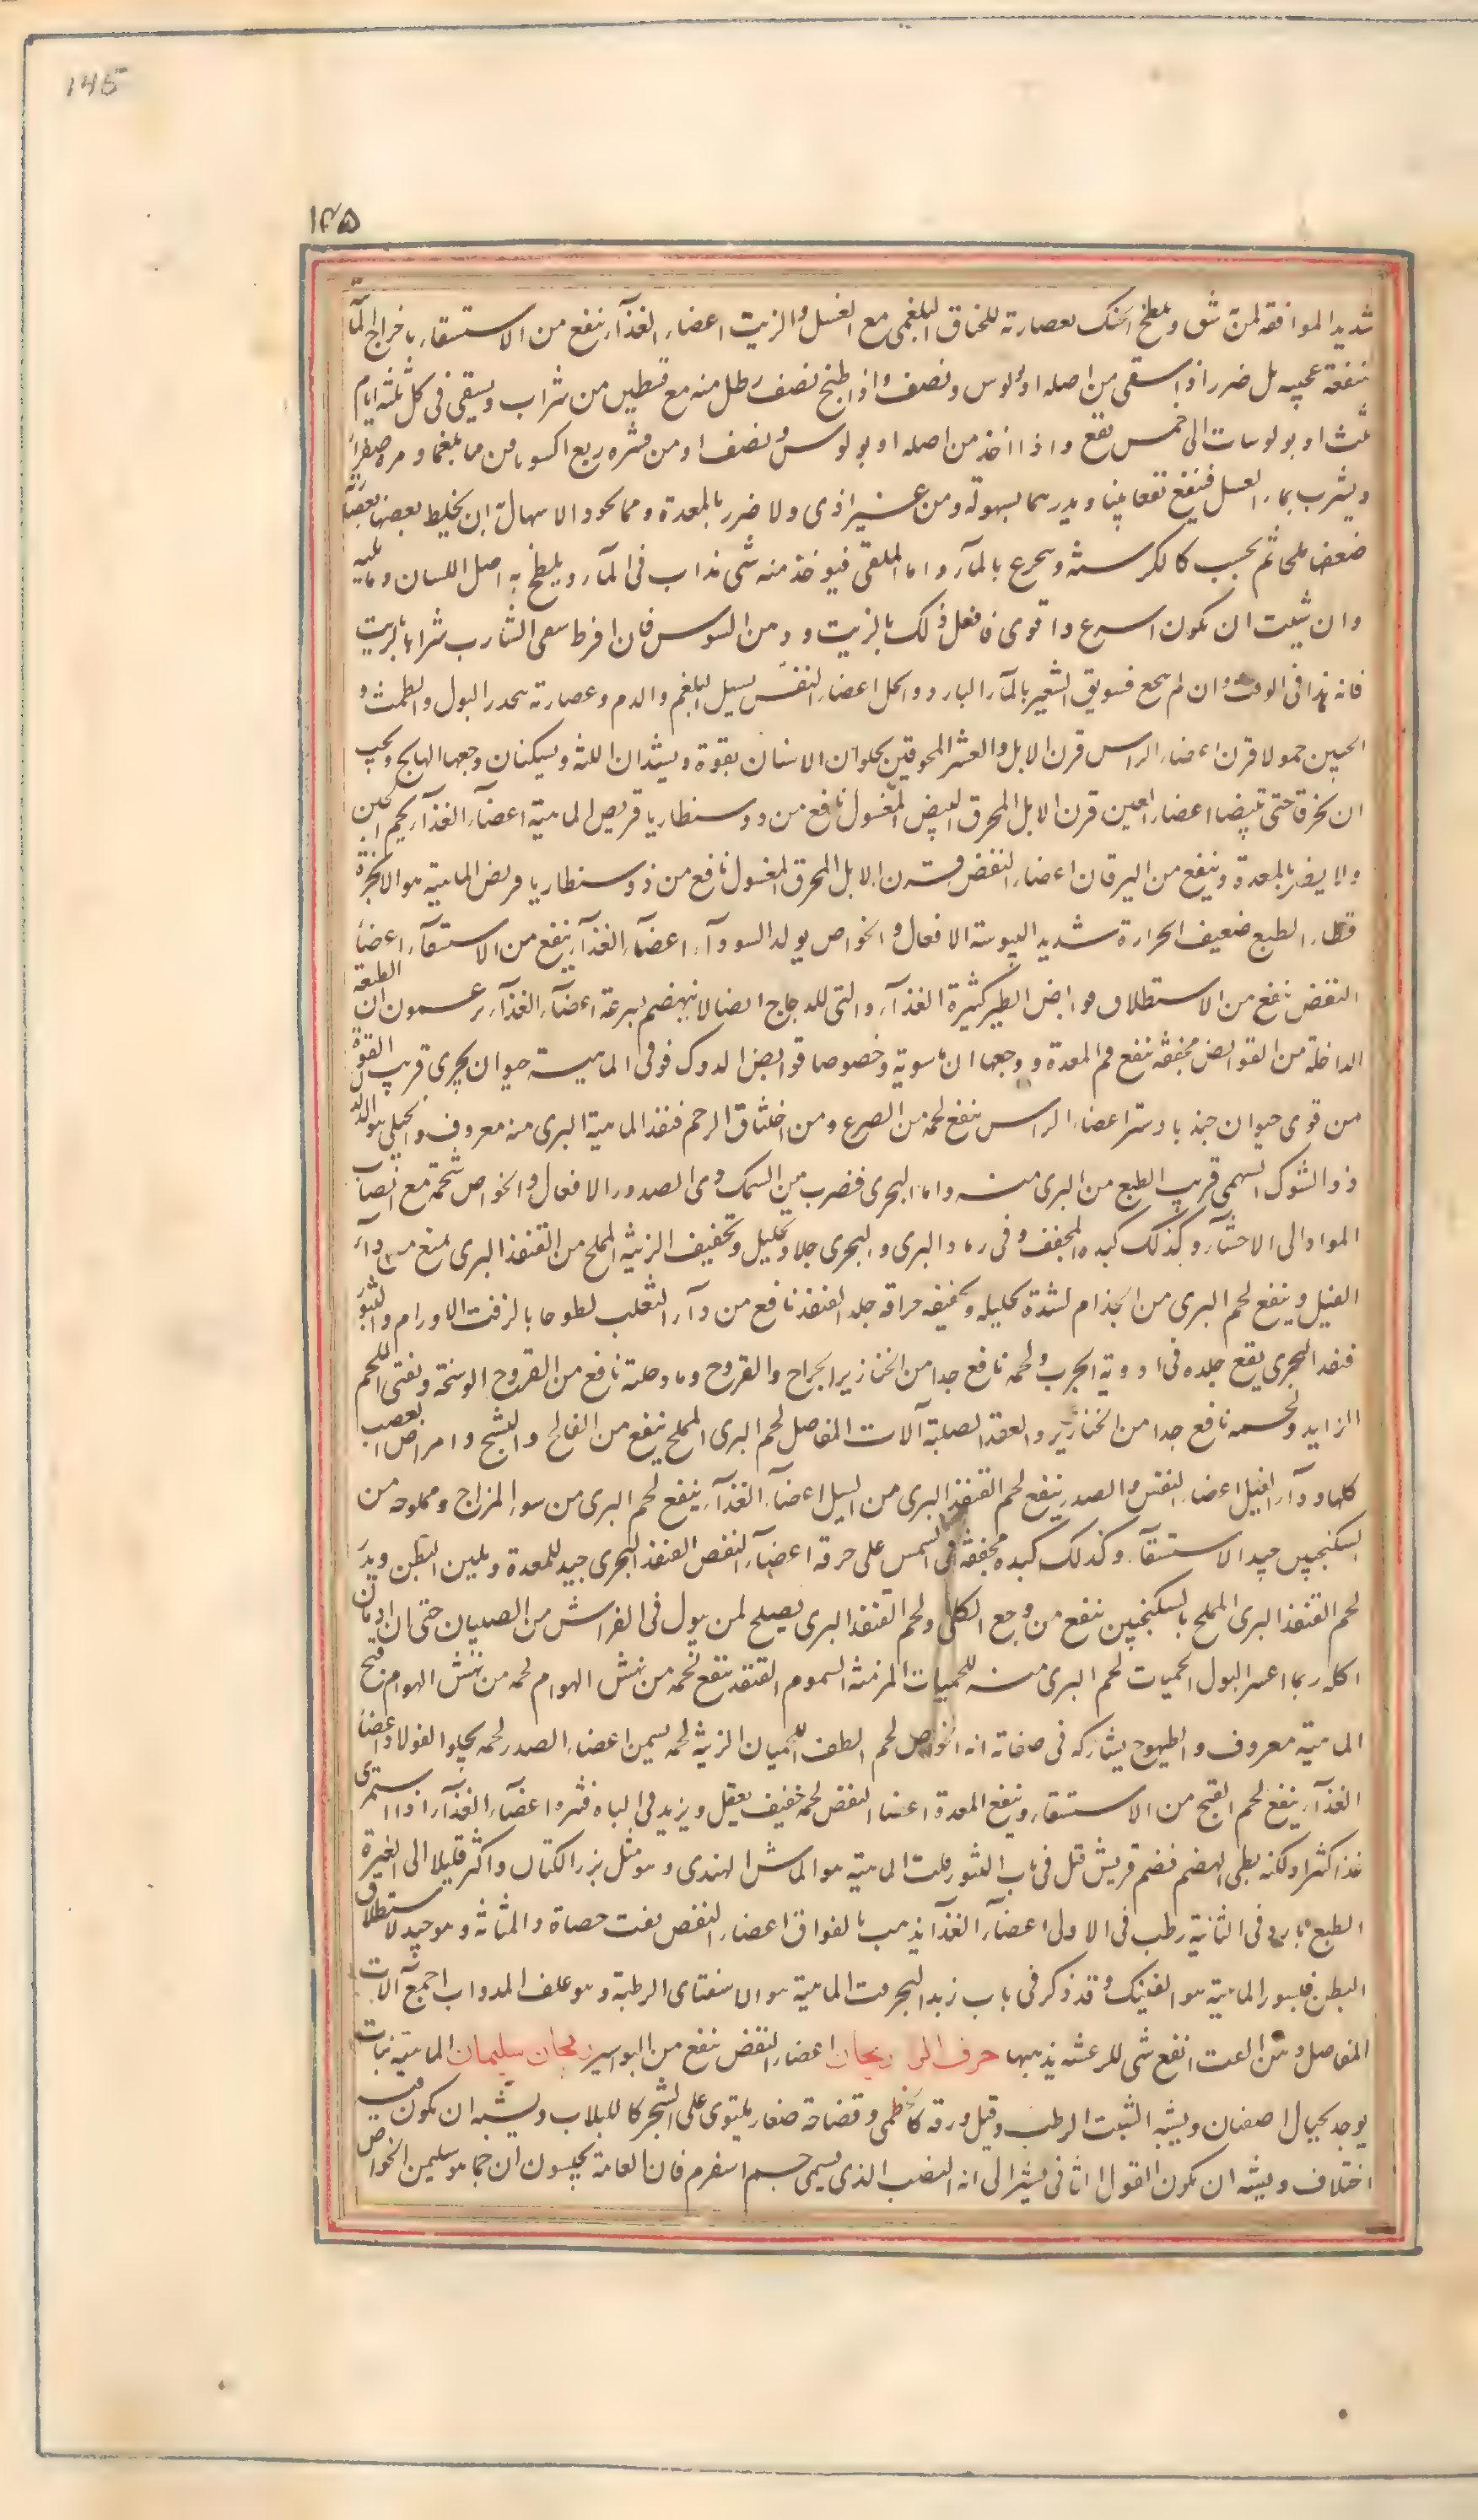 145
١٤٥
شديد الموافقه لمن شق و يلطخ الحنك بعصارته للخناق البلغمى مع العسل والزيت اعضاء الغذآء ينفع من الاستسقاء باخراج المآء
منفعة عجيبه بل ضرر اذا سقى من اصله اوبولوس ونصف واذا طبخ نصف رطل منه مع قسطين من شراب ويسقى فى كل ثلثه ايام
ثلث اوبولوسات الى خمس نفع واذا اخذ من اصله اوبولوس ونصف او من قشره ربع اكسوبافن بلغما و مره صفراء
ويشرب بماء العسل فينفع نفعا بينا ويدرهما بسهولة ومن غير اذى ولا ضرر بالمعدة ومما يجود الاسهال به ان يخلط بعضها بعضا
ضعفه ملحا ثم يحبب كالكرسنه ويتجرع بالمآء واما الملقى فيوخذ منه شى مذاب فى المآء ويلطخ به اصل اللسان وما يليه
وان شيت ان يكون اسرع واقوى فافعل ذلك بالزيت و دهن السوس فان افرط سقى الشارب شرابا بزيت
فانه يهذا فى الوقت وان لم ينجع فسويق الشعير بالمآء البارد والخل اعضاء النفس يسيل البلغم والدم وعصارته يحدر البول والطمث و
الجنين حمولا قرن اعضاء الراس قرن الابل والعشر المحرقين يجلوان الاسنان بقوة ويشدان اللثه ويسكنان وجعها الهايج ويجب
ان يحرقا حتى تبيضا اعضاء العين قرن الابل المحرق البيض المغسول نافع من دوسنطاريا قريص الماهية اعضآء الغذآء يحبم الجبن
ولا يضر بالمعدة وينفع من اليرقان اعضاء النفض قرن الابل المحرق المغسول نافع من ذوسنطاريا قريض الماهيه هو الانجرة
قطاء الطبع ضعيف الحرارة شديد اليبوسة الافعال والخواص يولد السودآء اعضآء الغذآء ينفع من الاستسقآء اعضاء
النفض ينفع من الاستطلاق قوابض الطير كثيرة الغذآء والتى للدجاج ايضا لا ينهضم بسرعة اعضآء الغذآء يزعمون ان الطبقه
الداخلة من القوابض مجففه ينفع فم المعدة ووجعها ان ماسويه وخصوصا قوابض الديوك قوقى الماهيسة حيوان بحرى قريب القوة
من قوى حيوان جندبادستر اعضاء الراس ينفع لحمه من الصرع ومن اختناق الرحم قنفذ الماهية البرى منه معروف والجبلى هو الدلدل
ذو الشوك السهمى قريب الطبع من البرى منه واما البحرى فضرب من السمك ذى الصدور الافعال والخواص شحمه مع انصباب
المواد الى الاحشآء وكذلك كبده المجفف وفى رماد البرى والبحرى جلا وتحليل وتجفيف الزينة المملح من القنفذ البرى يمنع من دآء
الفيل وينفع لحم البرى من الجذام لشدة تحليله وتجفيفه حراقه جلد القنفذ نافع من دآء الثعلب لطوخا بالزفت الاورام والبثور
قنفذ البحرى يقع جلده فى ادوية الجرب ولحمه نافع جدا من الخنازير الجراح والقروح رماد جلده نافع من القروح الوسخة ويفنى اللحم
الزايد ولحمه نافع جدا من الخنازير والعقد الصلبة آلات المفاصل لحم البرى المملح ينفع من الفالج والتشنج وامراض العصب
كلها ودآء الفيل اعضاء النفس والصدر ينفع لحم القنفذ البرى من السل اعضآء الغذآء ينفع لحم البرى من سوء المزاج ومملوحه من
السكنجبين جيد الاستسقآء وكذلك كبده مجففة فى الشمس على خرقة اعضآء النفض القنفذ البحرى جيد للمعدة ويلين البطن ويدر
لحم القنفذ البرى المملح بالسكنجبين ينفع من وجع الكلى ولحم القنفذ البرى يصلح لمن يبول فى الفراش من الصبيان حتى ان ادمان
اكله ربما اعسر البول الحميات لحم البرى منه للحميات المزمنة السموم القنفذ ينفع لحمه من نهش الهوام لحمه من نهش الهوام قبج
الماهية معروف والطيهوج يشاركه فى صفاته انه الخواص لحم الطف اللحمان الزينة لحمه يسمن اعضاء الصدر لحمه يجلوا الفولاد اعضاء
الغذآء ينفع لحم القبج من الاستسقاء وينفع المعدة اعضا النفض لحمه خفيف يعقل ويزيد فى الباه قثروا اعضآء الغذآء اذا استمرى
غذا كثيرا ولكنه بطى الهضم فضم قريش قيل فى باب البثور قلت الماهية هو الماش الهندى وهو مثل بزر الكتان واكثر قليلا الى الغبرة
الطبع بارد فى الثانية رطب فى الاول اعضآء الغذآ يذهب بالفواق اعضاء النفض يفت حصاة والمثانة وهو جيد لاستطلاق
البطن قلبور الماهية هو الفينك وقد ذكر فى باب زبد البحر قت الماهية هو الاسفتاى الرطبة وهو علف الدواب اجمع آلات
المفاصل دهن القت انفع شى للرعشه يذهبها حرف الرا ريحان اعضاء النفض ينفع من البواسير ريحان سليمان الماهيه نبات
يوجد بجبال اصفهان ويشبه الشبت الرطب وقيل ورقه كالخطمى وقضبانه صغار يلتوى على الشجر كاللبلاب ويشبه ان يكون فيه
اختلاف ويشبه ان يكون القول الثانى يشير الى انه النصب الذى يسمى جسم اسفرم فان العامة يحسبون ان جما هو سليمن الخواص